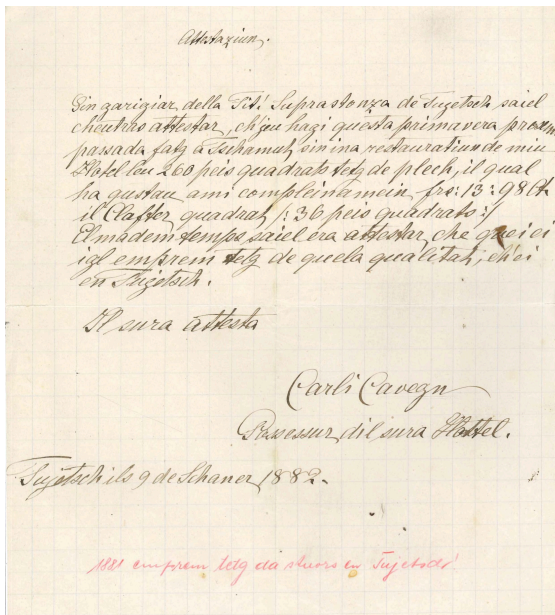 Attestaziun.
Sin garigiar della Tit. Suprastonza de Tugetsch saiel
cheutras attestar, ch'jeu hagi questa primavera proxim
passada fatg à Tschamut, sin ina restauratiun de miu
Hotel leu 260 peis quadrats tetg de plech, il qual
ha gustau ami compleinamein frs: 13:98 Ct.
il Clafter quadrat /: 36 peis quadrats :/
El madem temps saiel era attestar, che quei ei
igl emprem tetg de quella qualitat, ch'ei
en Tugetsch.
Il sura attesta
Carli Cavegn
Possessur dil sura Hottel.
Tujetsch ils 9 de Schaner 1882.
1881 emprem tetg da stuors en Tujetsch